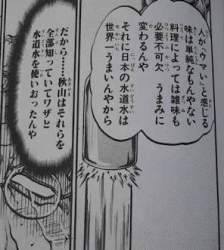 人が「ウマい」と感じる
味は単純なもんやない
料理によっては雑味も
必要不可欠 うまみに
変わるんや
それに日本の水道水は
世界一うまいんやから
だから………秋山はそれらを
全部知っていてワザと
水道水を使いおったんや